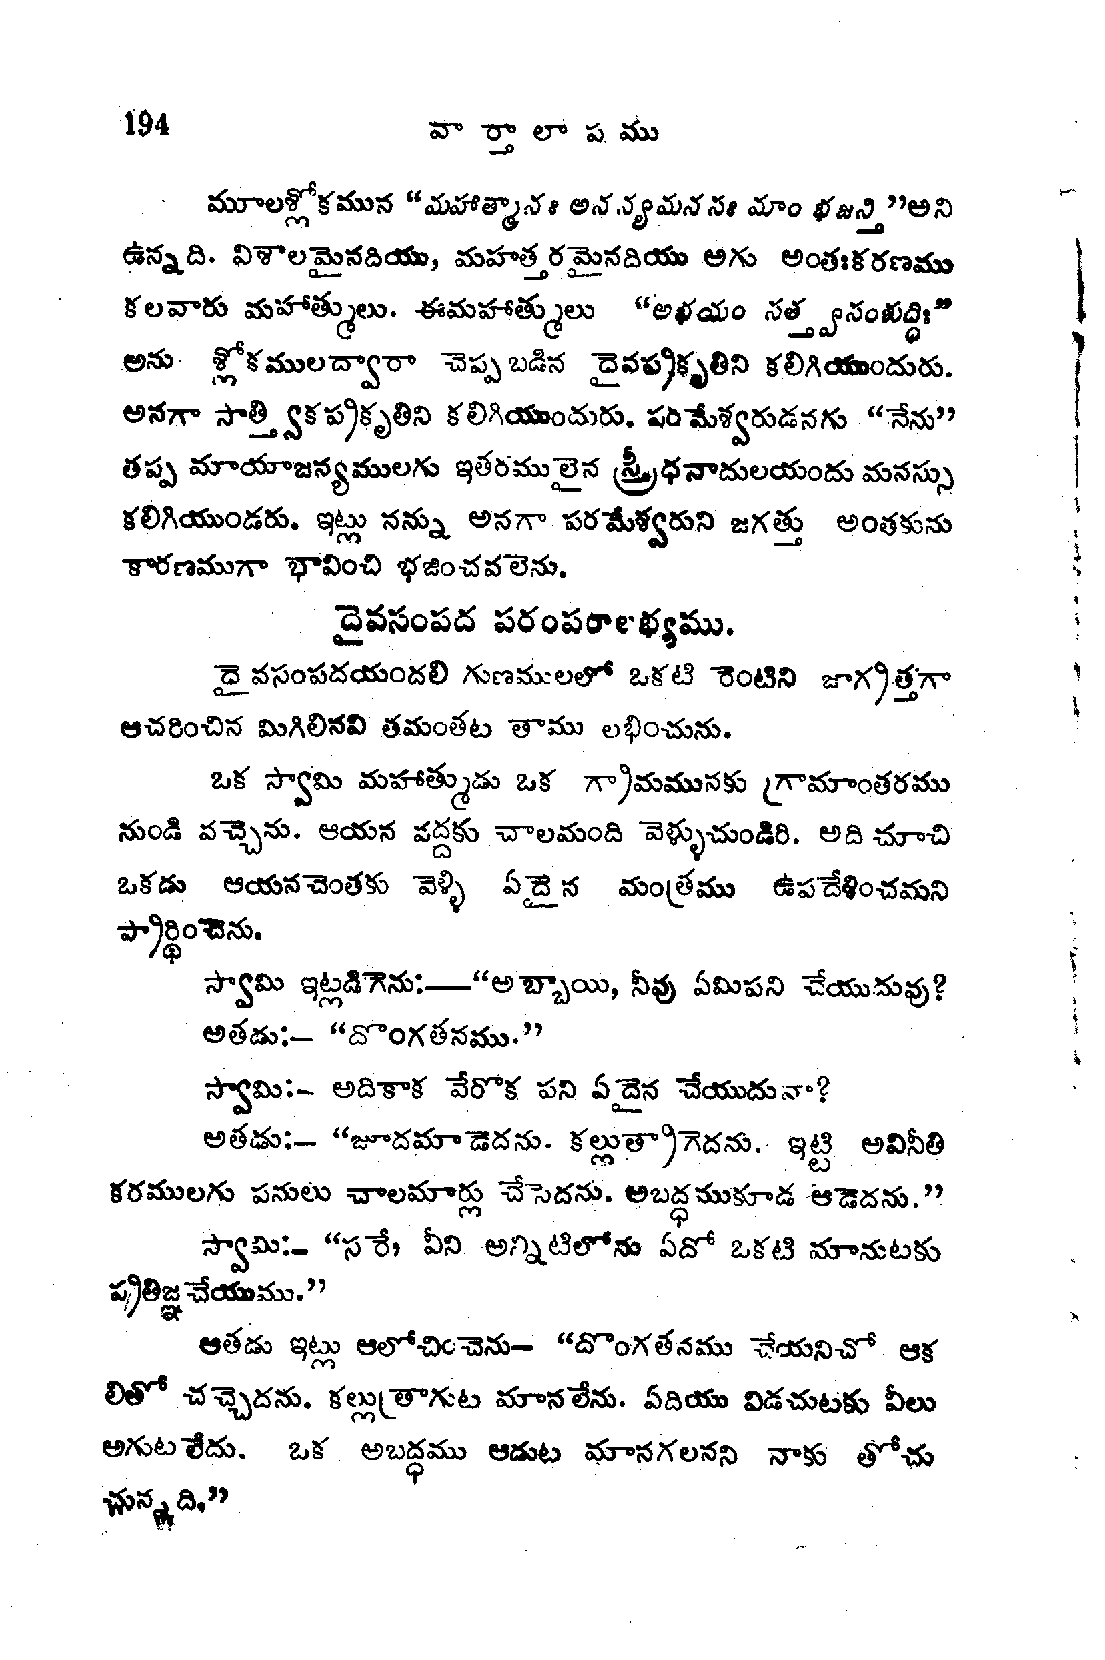 194
వార్తాలాపము
మూలశ్లోకమున “మహాత్మానః అనన్యమనసః మాం భజన్తి”అని
ఉన్నది. విశాలమైనదియు, మహత్తరమైనదియు అగు అంతఃకరణము
కలవారు మహాత్ములు. ఈమహాత్ములు “అభయం సత్త్వసంశుద్ధిః”
అను శ్లోకములద్వారా చెప్పబడిన దైవప్రకృతిని కలిగియుందురు.
అనగా సాత్త్వికప్రకృతిని కలిగియుందురు. పరమేశ్వరుడనగు “నేను”
తప్ప మాయాజన్యములగు ఇతరములైన స్త్రీధనాదులయందు మనస్సు
కలిగియుండరు. ఇట్లు నన్ను అనగా పరమేశ్వరుని జగత్తు అంతకును
కారణముగా భావించి భజించవలెను.
దైవసంపద పరంపరాలభ్యము.
దైవసంపదయందలి గుణములలో ఒకటి రెంటిని జాగ్రత్తగా
ఆచరించిన మిగిలినవి తమంతట తాము లభించును.
ఒక స్వామి మహాత్ముడు ఒక గ్రామమునకు గ్రామాంతరము
నుండి వచ్చెను. ఆయన వద్దకు చాలమంది వెళ్ళుచుండిరి. అది చూచి
ఒకడు ఆయనచెంతకు వెళ్ళి ఏదైన మంత్రము ఉపదేశించమని
ప్రార్థించెను.
స్వామి ఇట్లడిగెను:—“అబ్బాయి, నీవు ఏమిపని చేయుదువు?
అతడు:— “దొంగతనము.”
స్వామి:— అదికాక వేరొక పని ఏదైన చేయుదువా?
అతడు:— “జూదమాడెదను. కల్లుత్రాగెదను. ఇట్టి అవినీతి
కరములగు పనులు చాలమార్లు చేసెదను. అబద్ధముకూడ ఆడెదను.”
స్వామి:— “సరే, వీని అన్నిటిలోను ఏదో ఒకటి మానుటకు
ప్రతిజ్ఞచేయుము.”
అతడు ఇట్లు ఆలోచించెను— “దొంగతనము చేయనిచో ఆక
లితో చచ్చెదను. కల్లుత్రాగుట మానలేను. ఏదియు విడచుటకు వీలు
అగుటలేదు. ఒక అబద్ధము ఆడుట మానగలనని నాకు తోచు
చున్నది.”